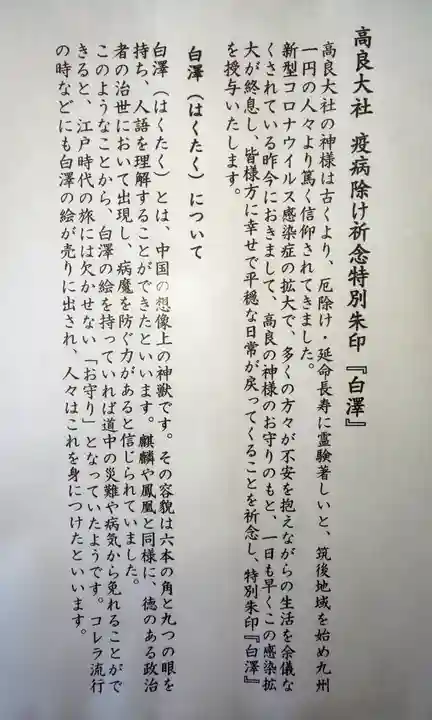 高良大社　疫病除け祈念特別朱印『白澤』
高良大社の神様は古くより、厄除け・延命長寿に霊験著しいと、筑後地域を始め九州
一円の人々より篤く信仰されてきました。
新型コロナウイルス感染症の拡大で、多くの方々が不安を抱えながらの生活を余儀な
くされている昨今におきまして、高良の神様のお守りのもと、一日も早くこの感染拡
大が終息し、皆様方に幸せで平穏な日常が戻ってくることを祈念し、特別朱印『白澤』
を授与いたします。
白澤（はくたく）について
白澤（はくたく）とは、中国の想像上の神獣です。その容貌は六本の角と九つの眼を
持ち、人語を理解することができたといいます。麒麟や鳳凰と同様に、徳のある政治
者の治世において出現し、病魔を防ぐ力があると信じられていました。
このようなことから、白澤の絵を持っていれば道中の災難や病気から免れることがで
きると、江戸時代の旅には欠かせない「お守り」となっていたようです。コレラ流行
の時などにも白澤の絵が売りに出され、人々はこれを身につけたといいます。